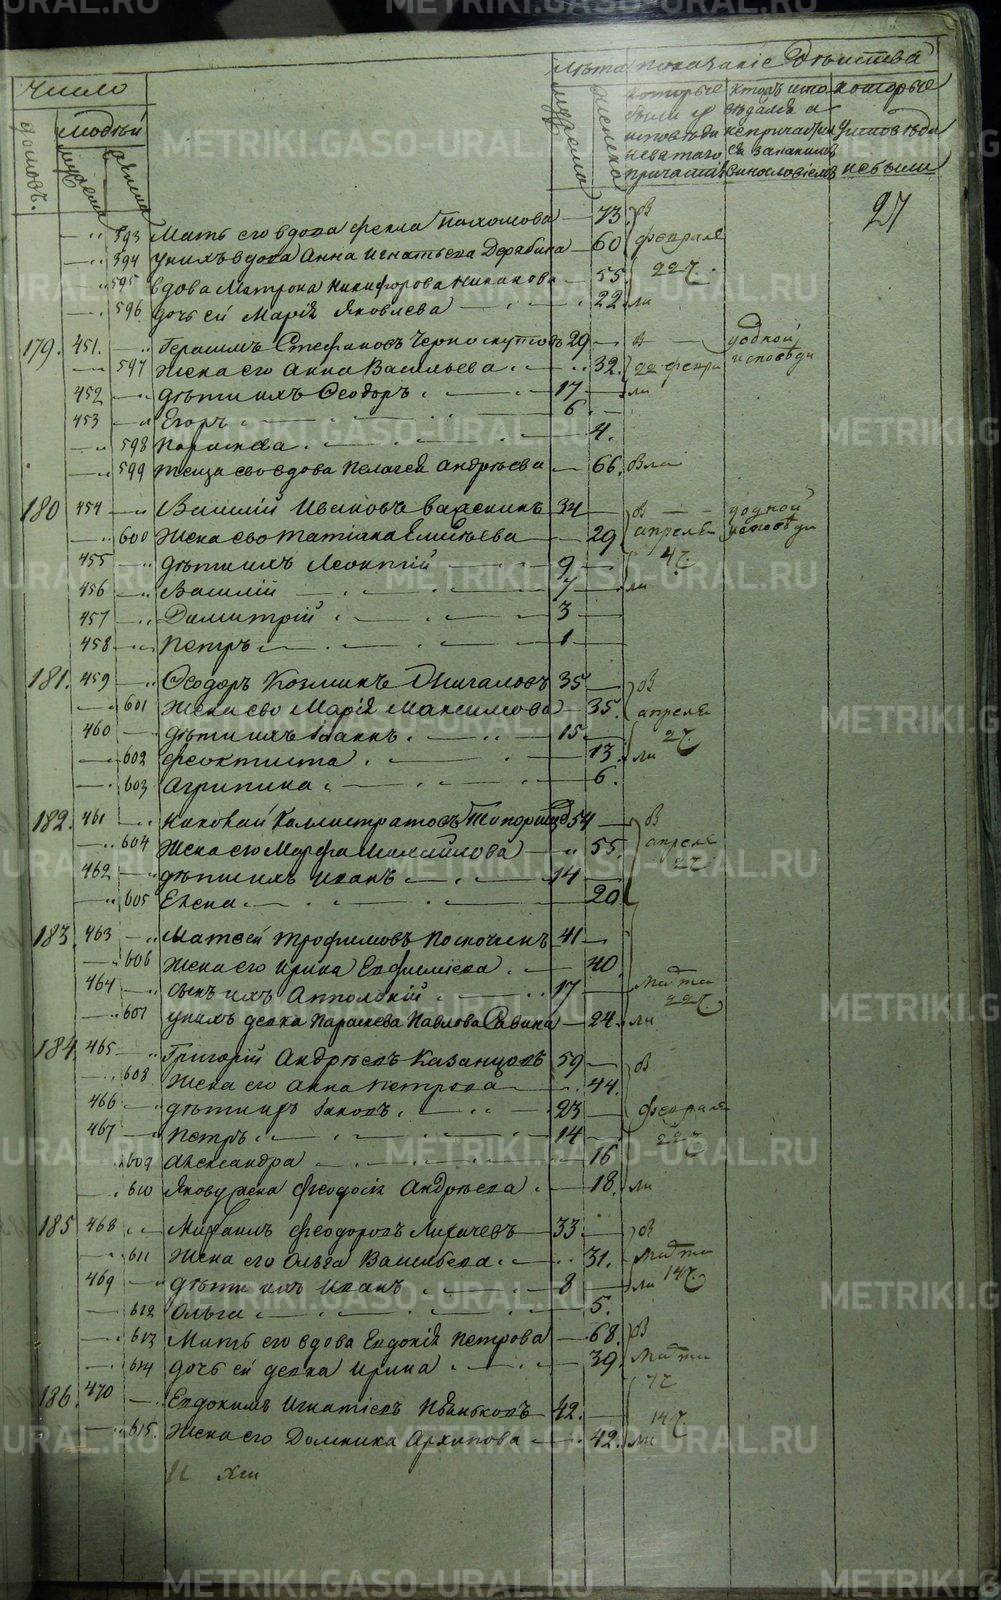 Число
лѣта
показаніе дѣиства
домовъ.
людѣй
мужска
женска
мужска
женска
которые были у исповѣди и святаго причастія
которые
у исповѣди
небыли
27
593 Мать его вдова Фекла Пахомова 73. въ
594 у нихъ вдова Анна Игнатьева Дерябина 60 февраля
595 вдова Матрона Никифорова 55. 22 ч.
596 дочь ей Марія Яковлева 22. ли
179. 451. Герасимъ Стефановъ Черноскутовъ 29 в однои
597 жена его Анна Васильева 32. 22 февра исповѣди
452 дѣти ихъ Ѳеодоръ 17 ли
453 Егоръ 6
598 Параскева 4.
599 теща его вдова Пелагея Андрѣева 66. в ли
180 454 Василій Ивановъ 34 в однои
600 жена его Татіана Емильева 29 апреля исповѣди
455 дѣти ихъ Леонтій 9 4 ч.
456 Василій 7 ли
457 Димитрій 3
458 Петръ 1
181. 459 Ѳеодоръ Козминъ 35 въ
601 жена его Марія Максимова 35. апреля
460 дѣти ихъ Іоаннъ 15 2 ч.
602 Феоктиста 13. ли
603 Агрипина 6.
182. 461 Николай Каллистратовъ Топорищевъ 54 въ
604 жена его Марфа Михайлова 55. апреля
462 дѣти ихъ Иванъ 14 2 ч.
605 Елена 20.
183. 463 Матвей Трофимовъ 41
606 жена его Ирина Евфимиева 40.
464 сынъ ихъ Апполоній 17 марта 22 ч.
607 у нихъ девка Параскева Павлова Савина 24. ли
184. 465 Григорій Андрѣевъ Казанцовъ 59 въ
608 жена его Анна Петрова 44.
466 дѣти ихъ Іаковъ 23 февраля
467 Петръ 14 22 ч.
609 Александра 16
610 Якову жена Феодосія Андрѣева 18. ли
185 468 Михаилъ Феодоровъ Лихачевъ 33 въ
611 жена его Ольга Васильева 31. марта
469 дѣти ихъ Иванъ 8 ли 14 ч.
612 Ольга 5.
613 Мать его вдова Евдокія Петрова 68. въ
614 дочь ей девка Ирина 39. марта
7 ч
186. 470 Евдокимъ Игнатіевъ Пьянковъ 42. 14 ч.
615. жена его Домника Архипова 42. ли